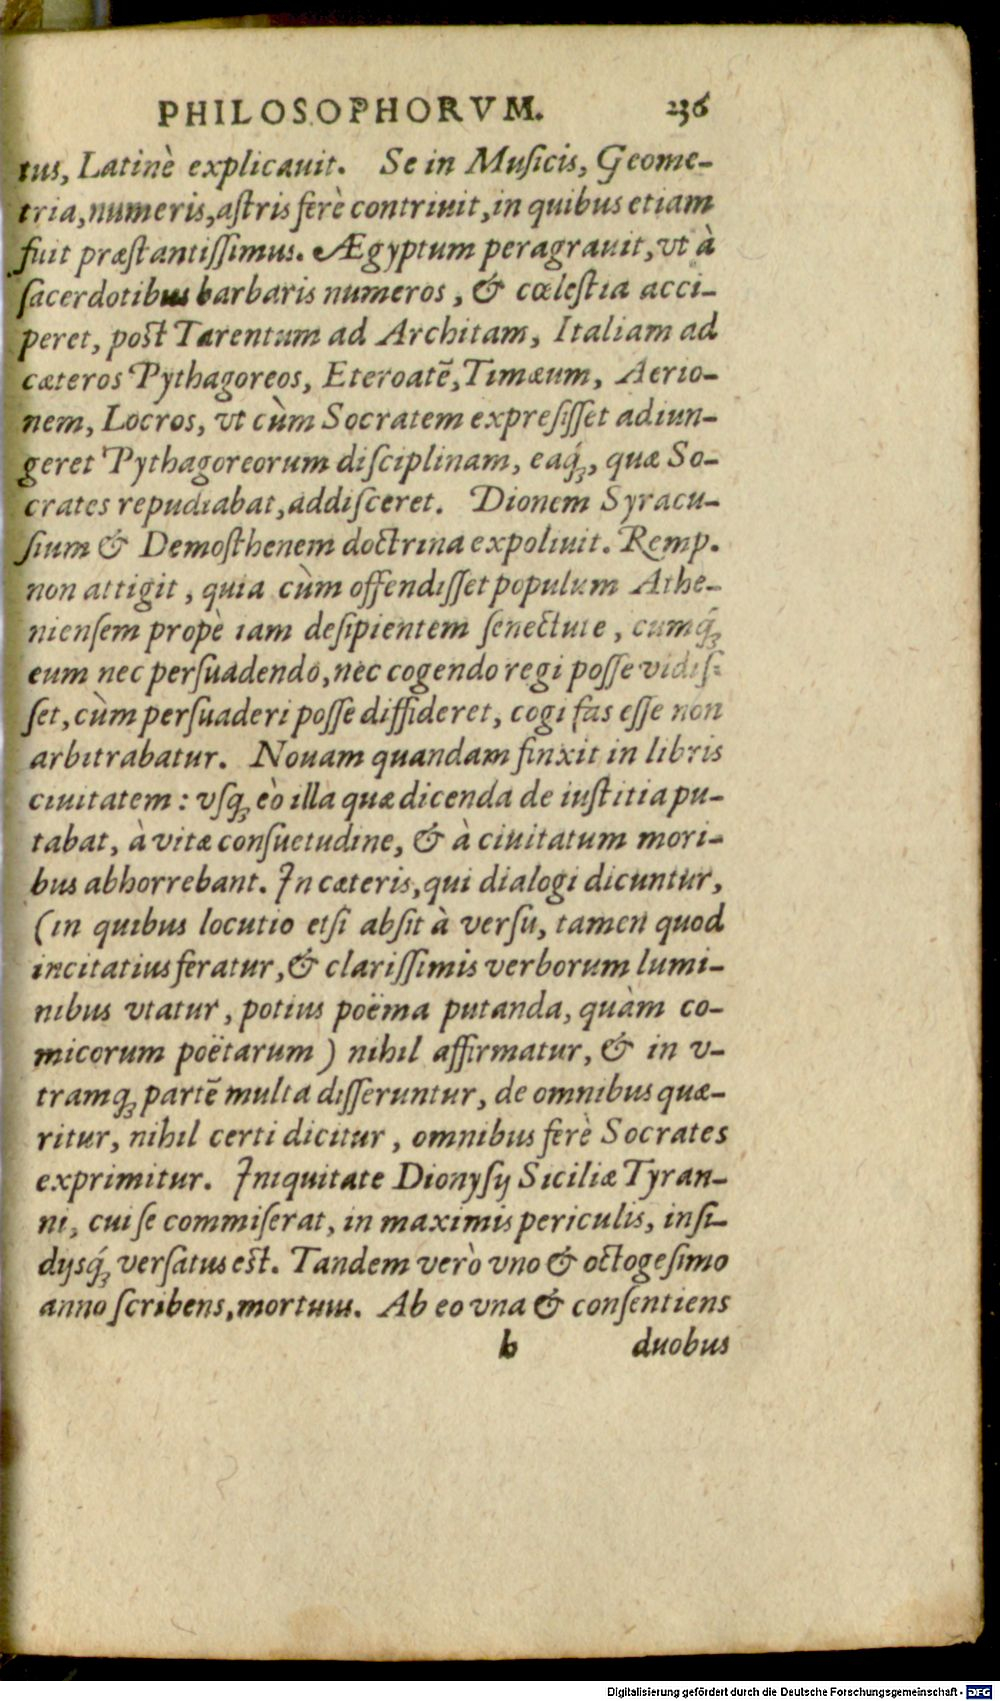 PHILOSOPHORVM. 236
tus, Latinè explicauit. Se in Muſicis, Geome-
tria, numeris, aſtris ferè contriuit, in quibus etiam
fuit præſtantiſſimus. Ægyptum peragrauit, vt à
ſacerdotibus barbaris numeros, & cœleſtia acci-
peret, poſt Tarentum ad Architam, Italiam ad
cæteros Pythagoreos, Eteroatē, Timæum, Aerio-
nem, Locros, vt cùm Socratem expreſiſſet adiun-
geret Pythagoreorum diſciplinam, eaq́;, quæ So-
crates repudiabat, addiſceret. Dionem Syracu-
ſium & Demoſthenem doctrina expoliuit. Remp.
non attigit, quia cùm offendiſſet populum Athe-
nienſem propè iam deſipientem ſenectute, cumq́;
eum nec perſuadendo, nec cogendo regi poſſe vidiſ-
ſet, cùm perſuaderi poſſe diffideret, cogi fas eſſe non
arbitrabatur. Nouam quandam finxit in libris
ciuitatem: vſq; eò illa quæ dicenda de iuſtitia pu-
tabat, à vitæ conſuetudine, & à ciuitatum mori-
bus abhorrebant. In cæteris, qui dialogi dicuntur,
(in quibus locutio etſi abſit à verſu, tamen quod
incitatius feratur, & clariſſimis verborum lumi-
nibus vtatur, potius poëma putanda, quàm co-
micorum poëtarum) nihil affirmatur, & in v-
tramq; partē multa diſſeruntur, de omnibus quæ-
ritur, nihil certi dicitur, omnibus ferè Socrates
exprimitur. Iniquitate Dionyſij Siciliæ Tyran-
ni, cui ſe commiſerat, in maximis periculis, inſi-
dijsq́; verſatus eſt. Tandem verò vno & octogeſimo
anno ſcribens, mortuus. Ab eo vna & conſentiens
b duobus
Digitalisierung gefördert durch die Deutsche Forschungsgemeinschaft - DFG